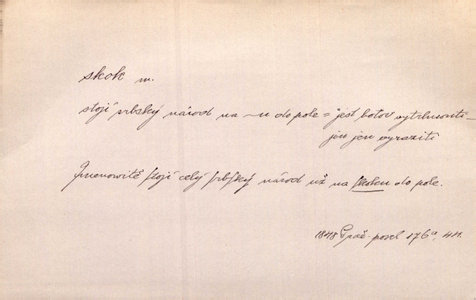 skok m.
stojí srbský národ na ~u do pole = jest hotov vytrhnouti
jen jen vyraziti
Jmenovitě stojí celý srbský národ už na skoku do pole.
1848 Praž. posel 176a, 44.